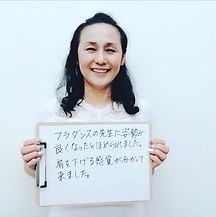 フラダンスの先生に姿勢が
良くなったとほめられました。
肩を下げる感覚が分かって
来ました。